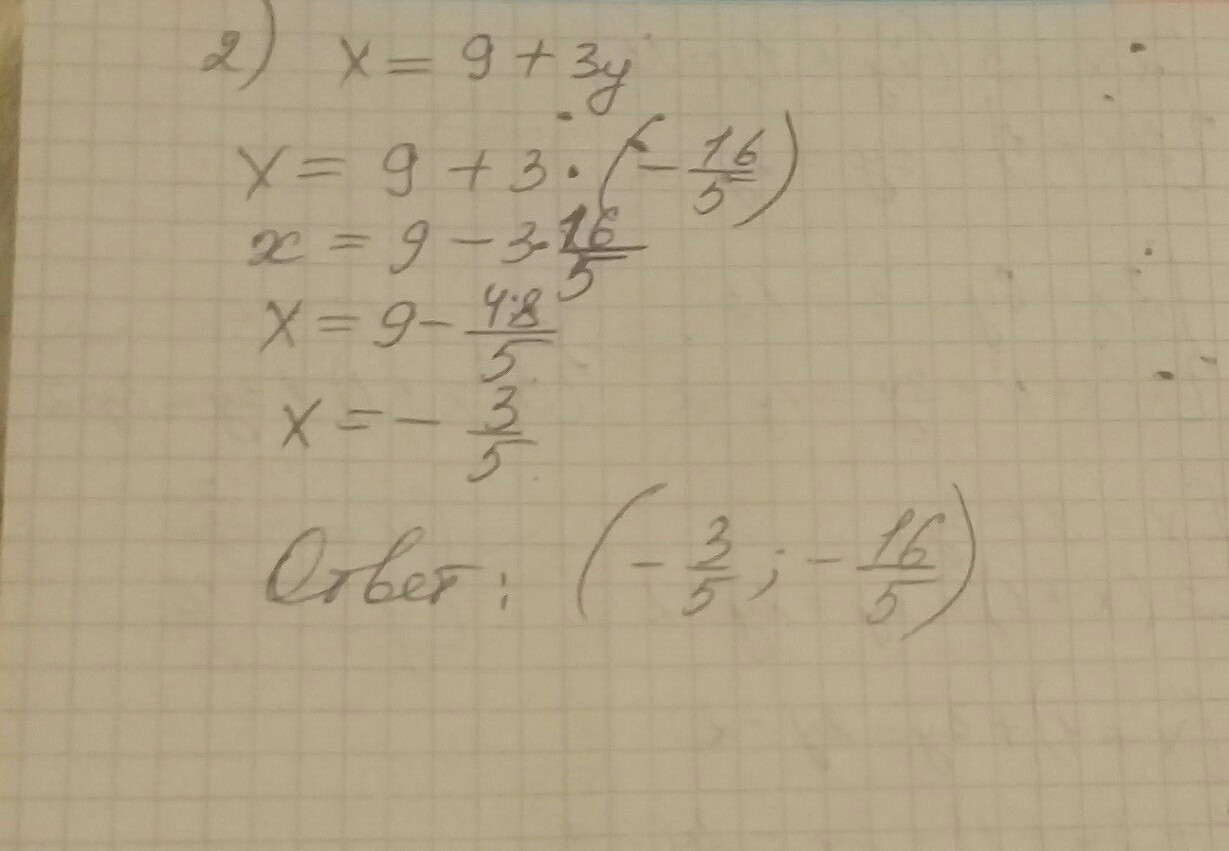 2) x = 9 + 3y
x = 9 + 3 · (- 16/5)
x = 9 - 3 · 16/5
x = 9 - 48/5
x = - 3/5
Ответ: (- 3/5 ; - 16/5)